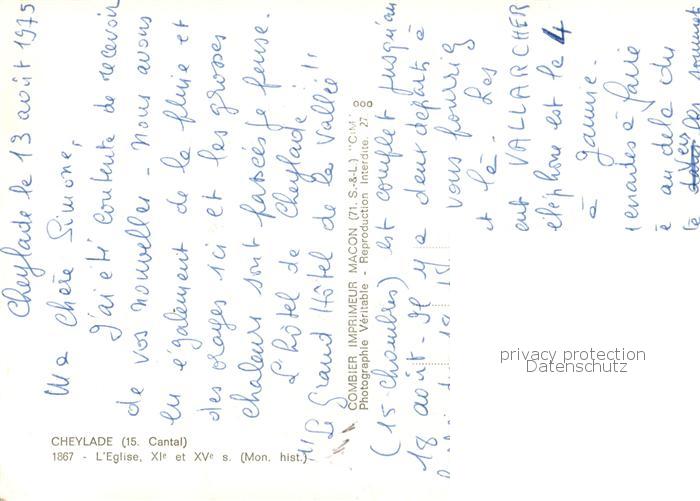 Cheylade le 13 août 1975
Ma chère Simone,
J'ai été contente de recevoir
de vos nouvelles - Nous avons
eu également de la pluie et
des orages ici et les grosses
chaleurs sont passées je pense.
L'hôtel de Cheylade :
"Le Grand Hôtel de la Vallée"
(15 chambres) est complet jusqu'au
18 août - Il y a deux départs à
vous pourriez
et là - Les
ent VALLARCHER
éléphone est le 4
à gamme -
à faire
au delà du
CHEYLADE (15. Cantal)
1867 - L'Eglise, XIe et XVe s. (Mon. hist.)
COMBIER IMPRIMEUR MACON (71. S.-&-L.) "CIM"
Photographie Véritable - Reproduction Interdite. 27
privacy protection
Datenschutz